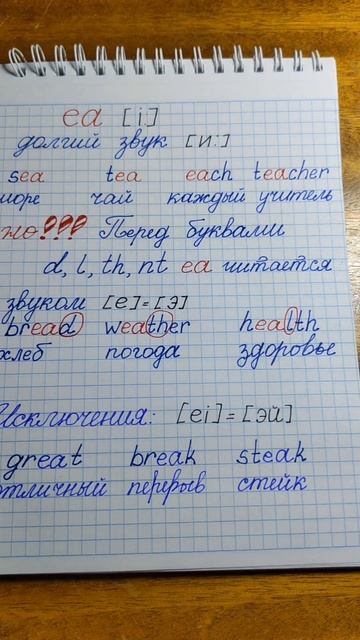 ea [i]
долгий звук [и:]
sea tea each teacher
море чай каждый учитель
но??? Перед буквами
d, l, th, nt ea читается
звуком [e]=[э]
bread weather health
хлеб погода здоровье
Исключения: [ei]=[эй]
great break steak
отличный перерыв стейк